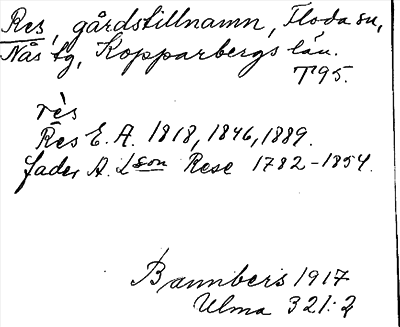 Res, gårdstillnamn, Floda sn,
Nås tg, Kopparbergs län.
T 95.
rès
Res E. A. 1818, 1846, 1889.
fader A. Lson Rese 1782-1854.
Bannbers 1917
Ulma 321:2